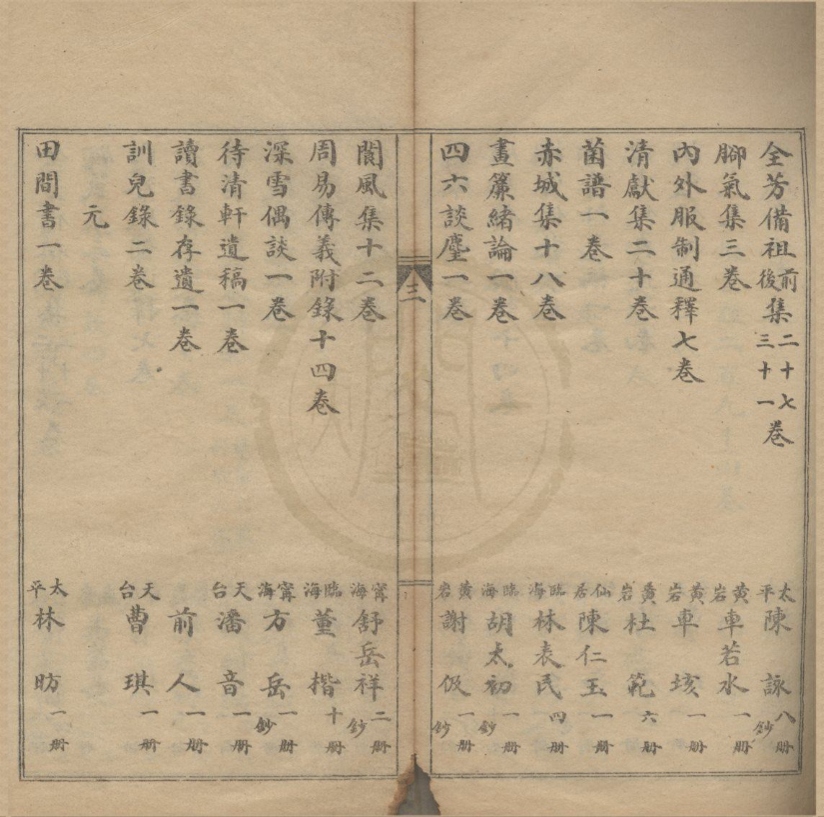 全芳備祖前後集二十七三十一卷 太平陳詠八冊鈔
腳氣集三卷 黃岩車若水一冊
內外服制通釋七卷 黃岩車垓一冊
清獻集二十卷 黃岩杜範六冊
菌譜一卷 仙居陳仁玉一冊
赤城集十八卷 臨海林表民四冊
晝簾緒論一卷 臨海胡太初一冊鈔
四六談麈一卷 黃岩謝伋一冊鈔
三
閬風集十二卷 甯海舒岳祥二冊鈔
周易傳義附錄十四卷 臨海董楷十冊
深雪偶談一卷 甯海方岳一冊鈔
待清軒遺稿一卷 天台潘音一冊
讀書錄存遺一卷 前人一冊
訓兒錄二卷 天台曹琪一冊
元
田間書一卷 太平林昉一冊